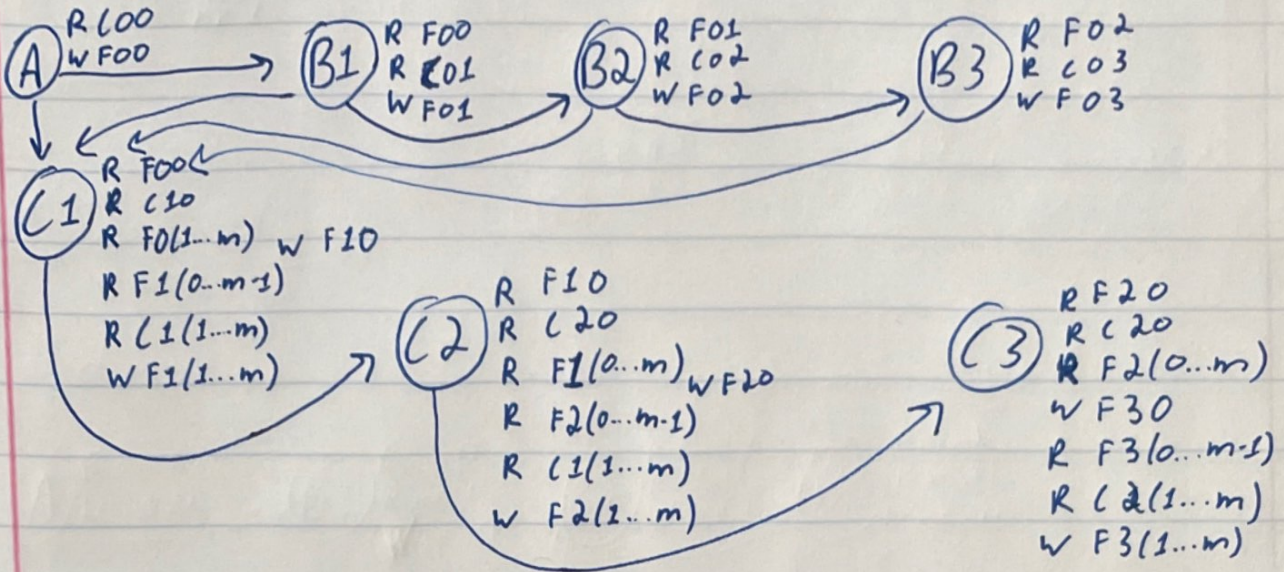 A
R C00
W F00
B1
R F00
R C01
W F01
B2
R F01
R C02
W F02
B3
R F02
R C03
W F03
C1
R F00
R C10
R F0(1...m) W F10
R F1(0...m-1)
R C1(1...m)
W F1(1...m)
C2
R F10
R C20
R F1(0...m) W F20
R F2(0...m-1)
R C1(1...m)
W F2(1...m)
C3
R F20
R C20
R F2(0...m)
W F30
R F3(0...m-1)
R C2(1...m)
W F3(1...m)